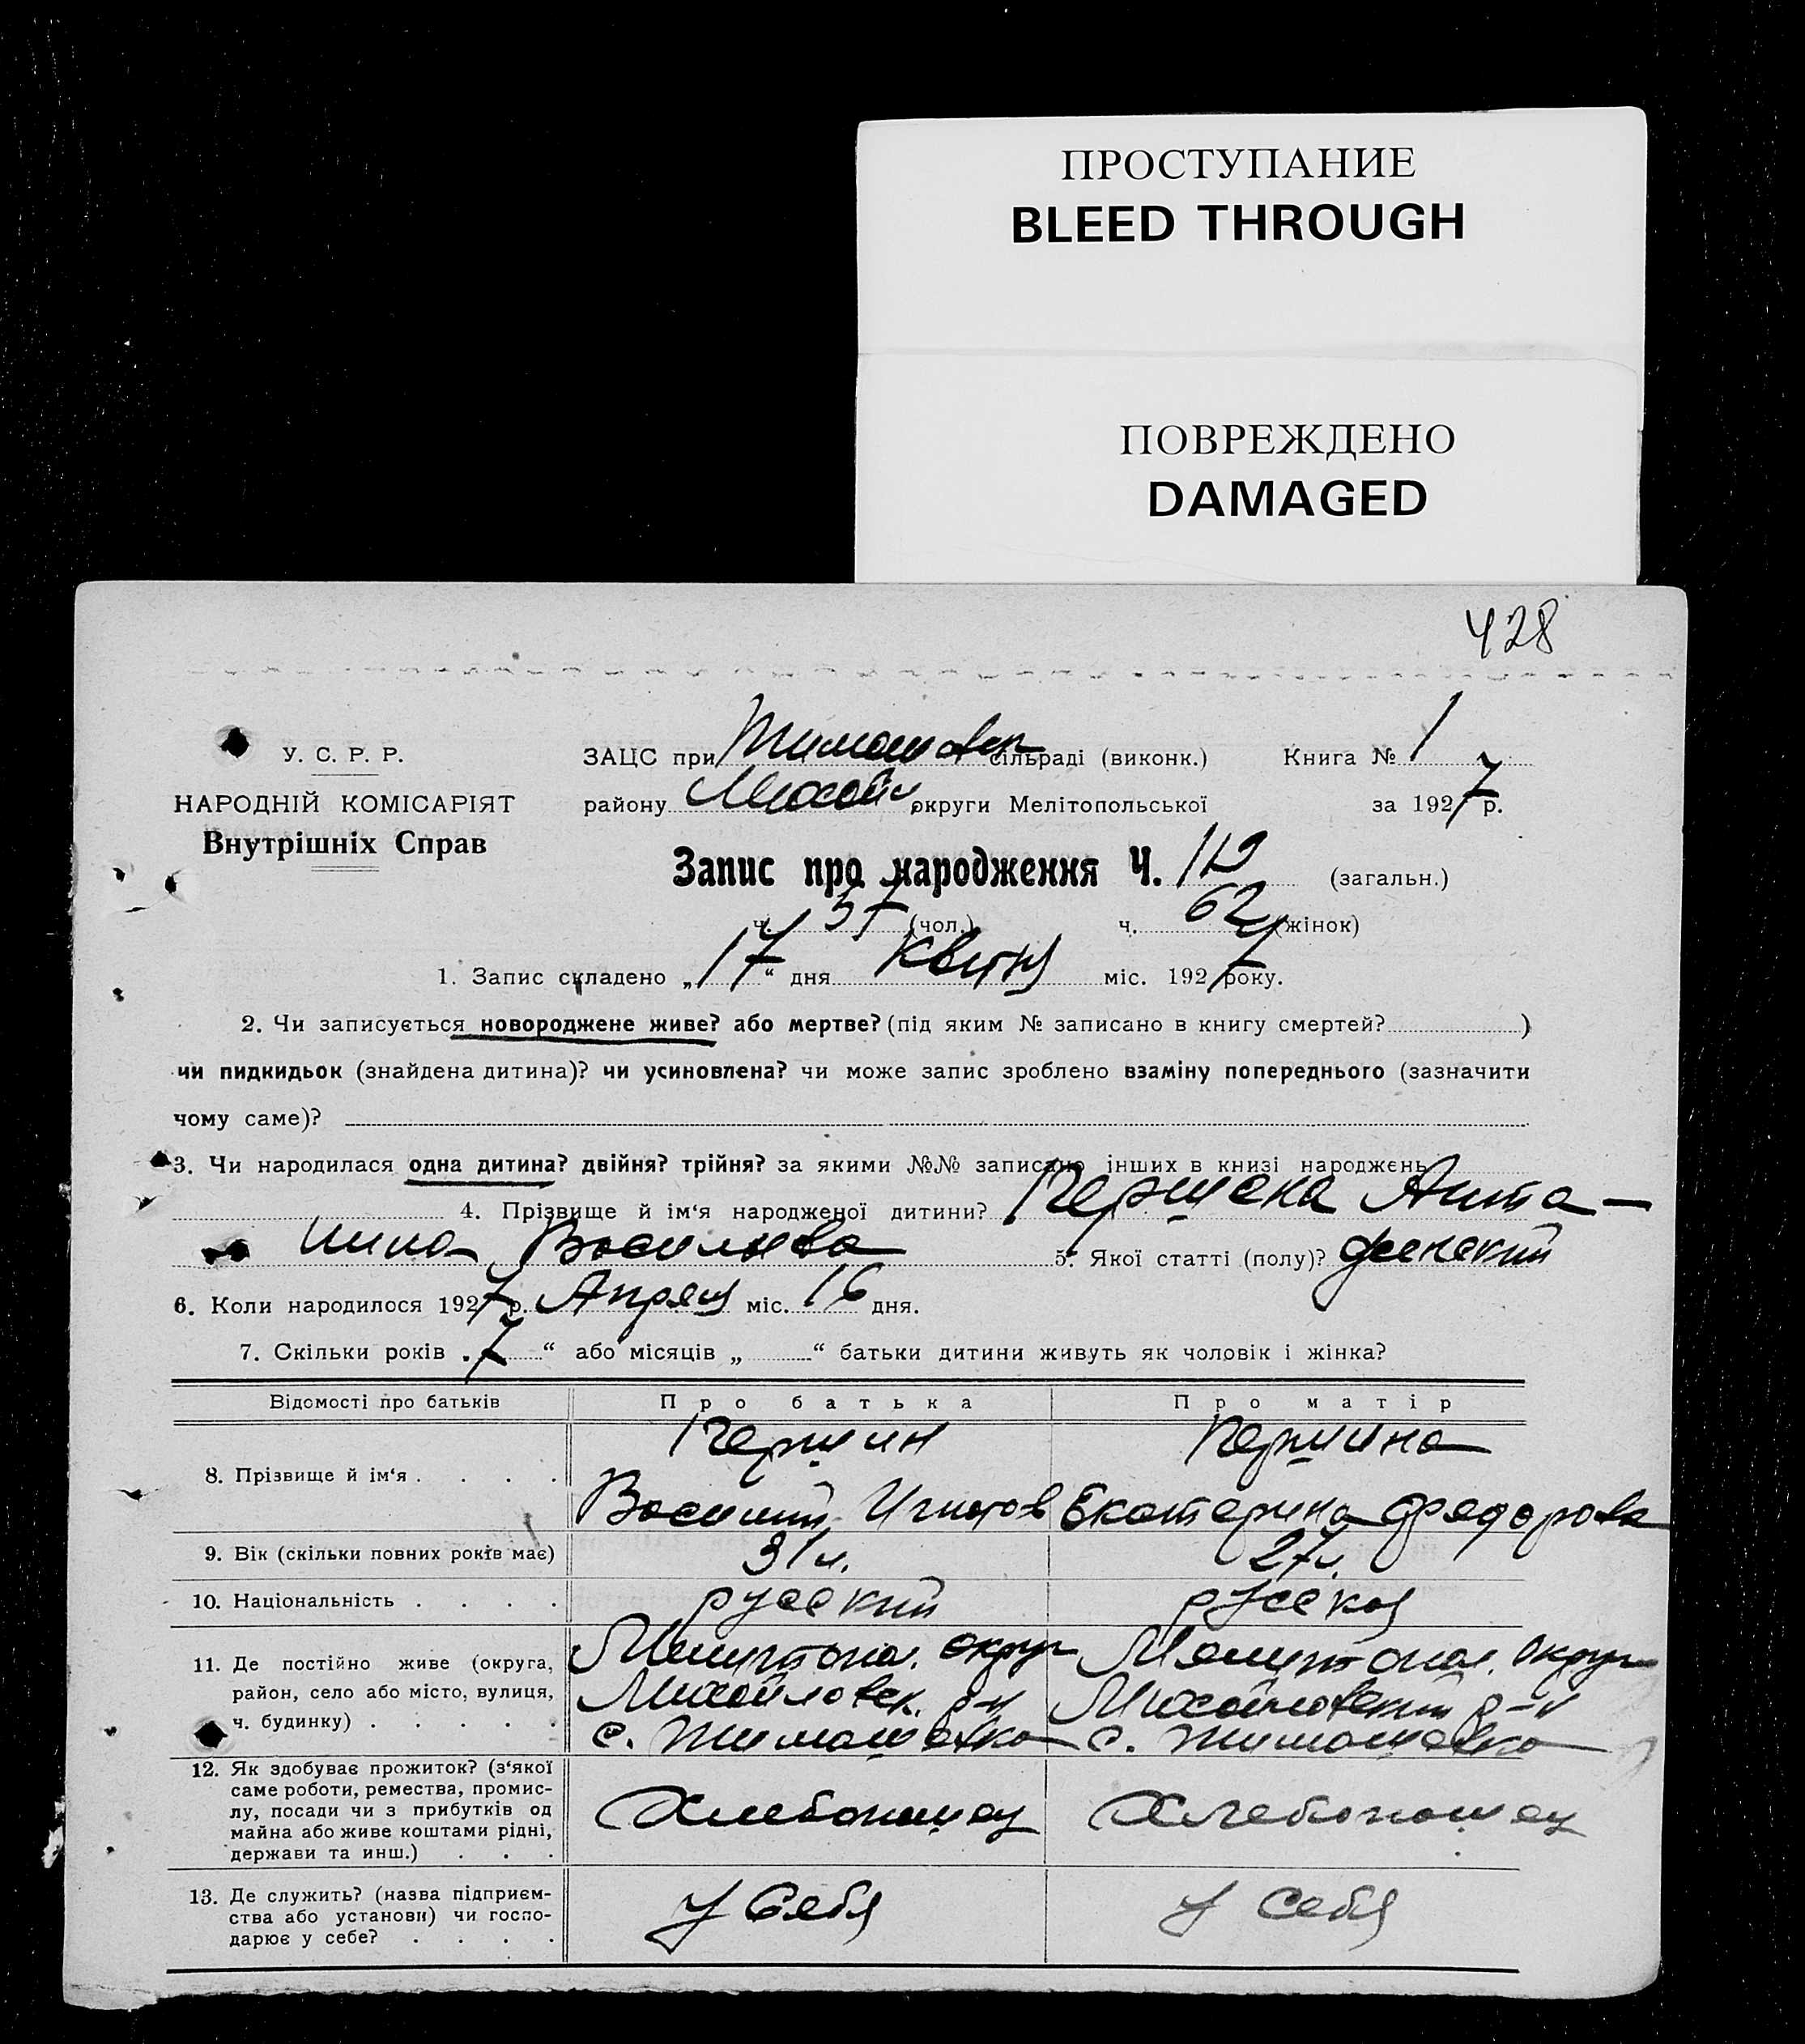 ПРОСТУПАНИЕ
BLEED THROUGH
ПОВРЕЖДЕНО
DAMAGED
428
У. С. Р. Р.
НАРОДНІЙ КОМІСАРІЯТ
Внутрішніх Справ
ЗАЦС при Тимошовск сільраді (виконк.) Книга № 1
району Михайл округи Мелітопольської за 1927 р.
Запис про народження Ч. 119 (загальн.)
ч. 57 (чол.) ч. 62 (жінок)
1. Запис складено „17“ дня Квитня міс. 1927 року.
2. Чи записується новороджене живе? або мертве? (під яким № записано в книгу смертей? )
чи пидкидьок (знайдена дитина)? чи усиновлена? чи може запис зроблено взаміну попереднього (зазначити
чому саме)?
3. Чи народилася одна дитина? двійня? трійня? за якими №№ записано інших в книзі народжень
4. Прізвище й ім‘я народженої дитини?
Васильева 5. Якої статті (полу)? женский
6. Коли народилося 1927 р. Апреля міс. 16 дня.
7. Скільки років „7“ або місяців „ “ батьки дитини живуть як чоловік і жінка?
Відомості про батьків Про батька Про матір
8. Прізвище й ім‘я . . . . Першин Першина
Василий Екатерина Федорова
9. Вік (скільки повних років має) 31 л. 27 л.
10. Національність . . . . русский русская
11. Де постійно живе (округа, район, село або місто, вулиця, ч. будинку) . . . . .
Мелитопол. округ Мелитопол. округ
Михайловск. р-н Михайловский р-н
с. Тимошовка с. Тимошовка
12. Як здобуває прожиток? (з‘якої
саме роботи, ремества, промис-
лу, посади чи з прибутків од
майна або живе коштами рідні,
держави та инш.) . . .
Хлебопашец Хлебопашец
13. Де служить? (назва підприєм-
ства або установи) чи госпо-
дарює у себе? . . . .
У Себя У Себя